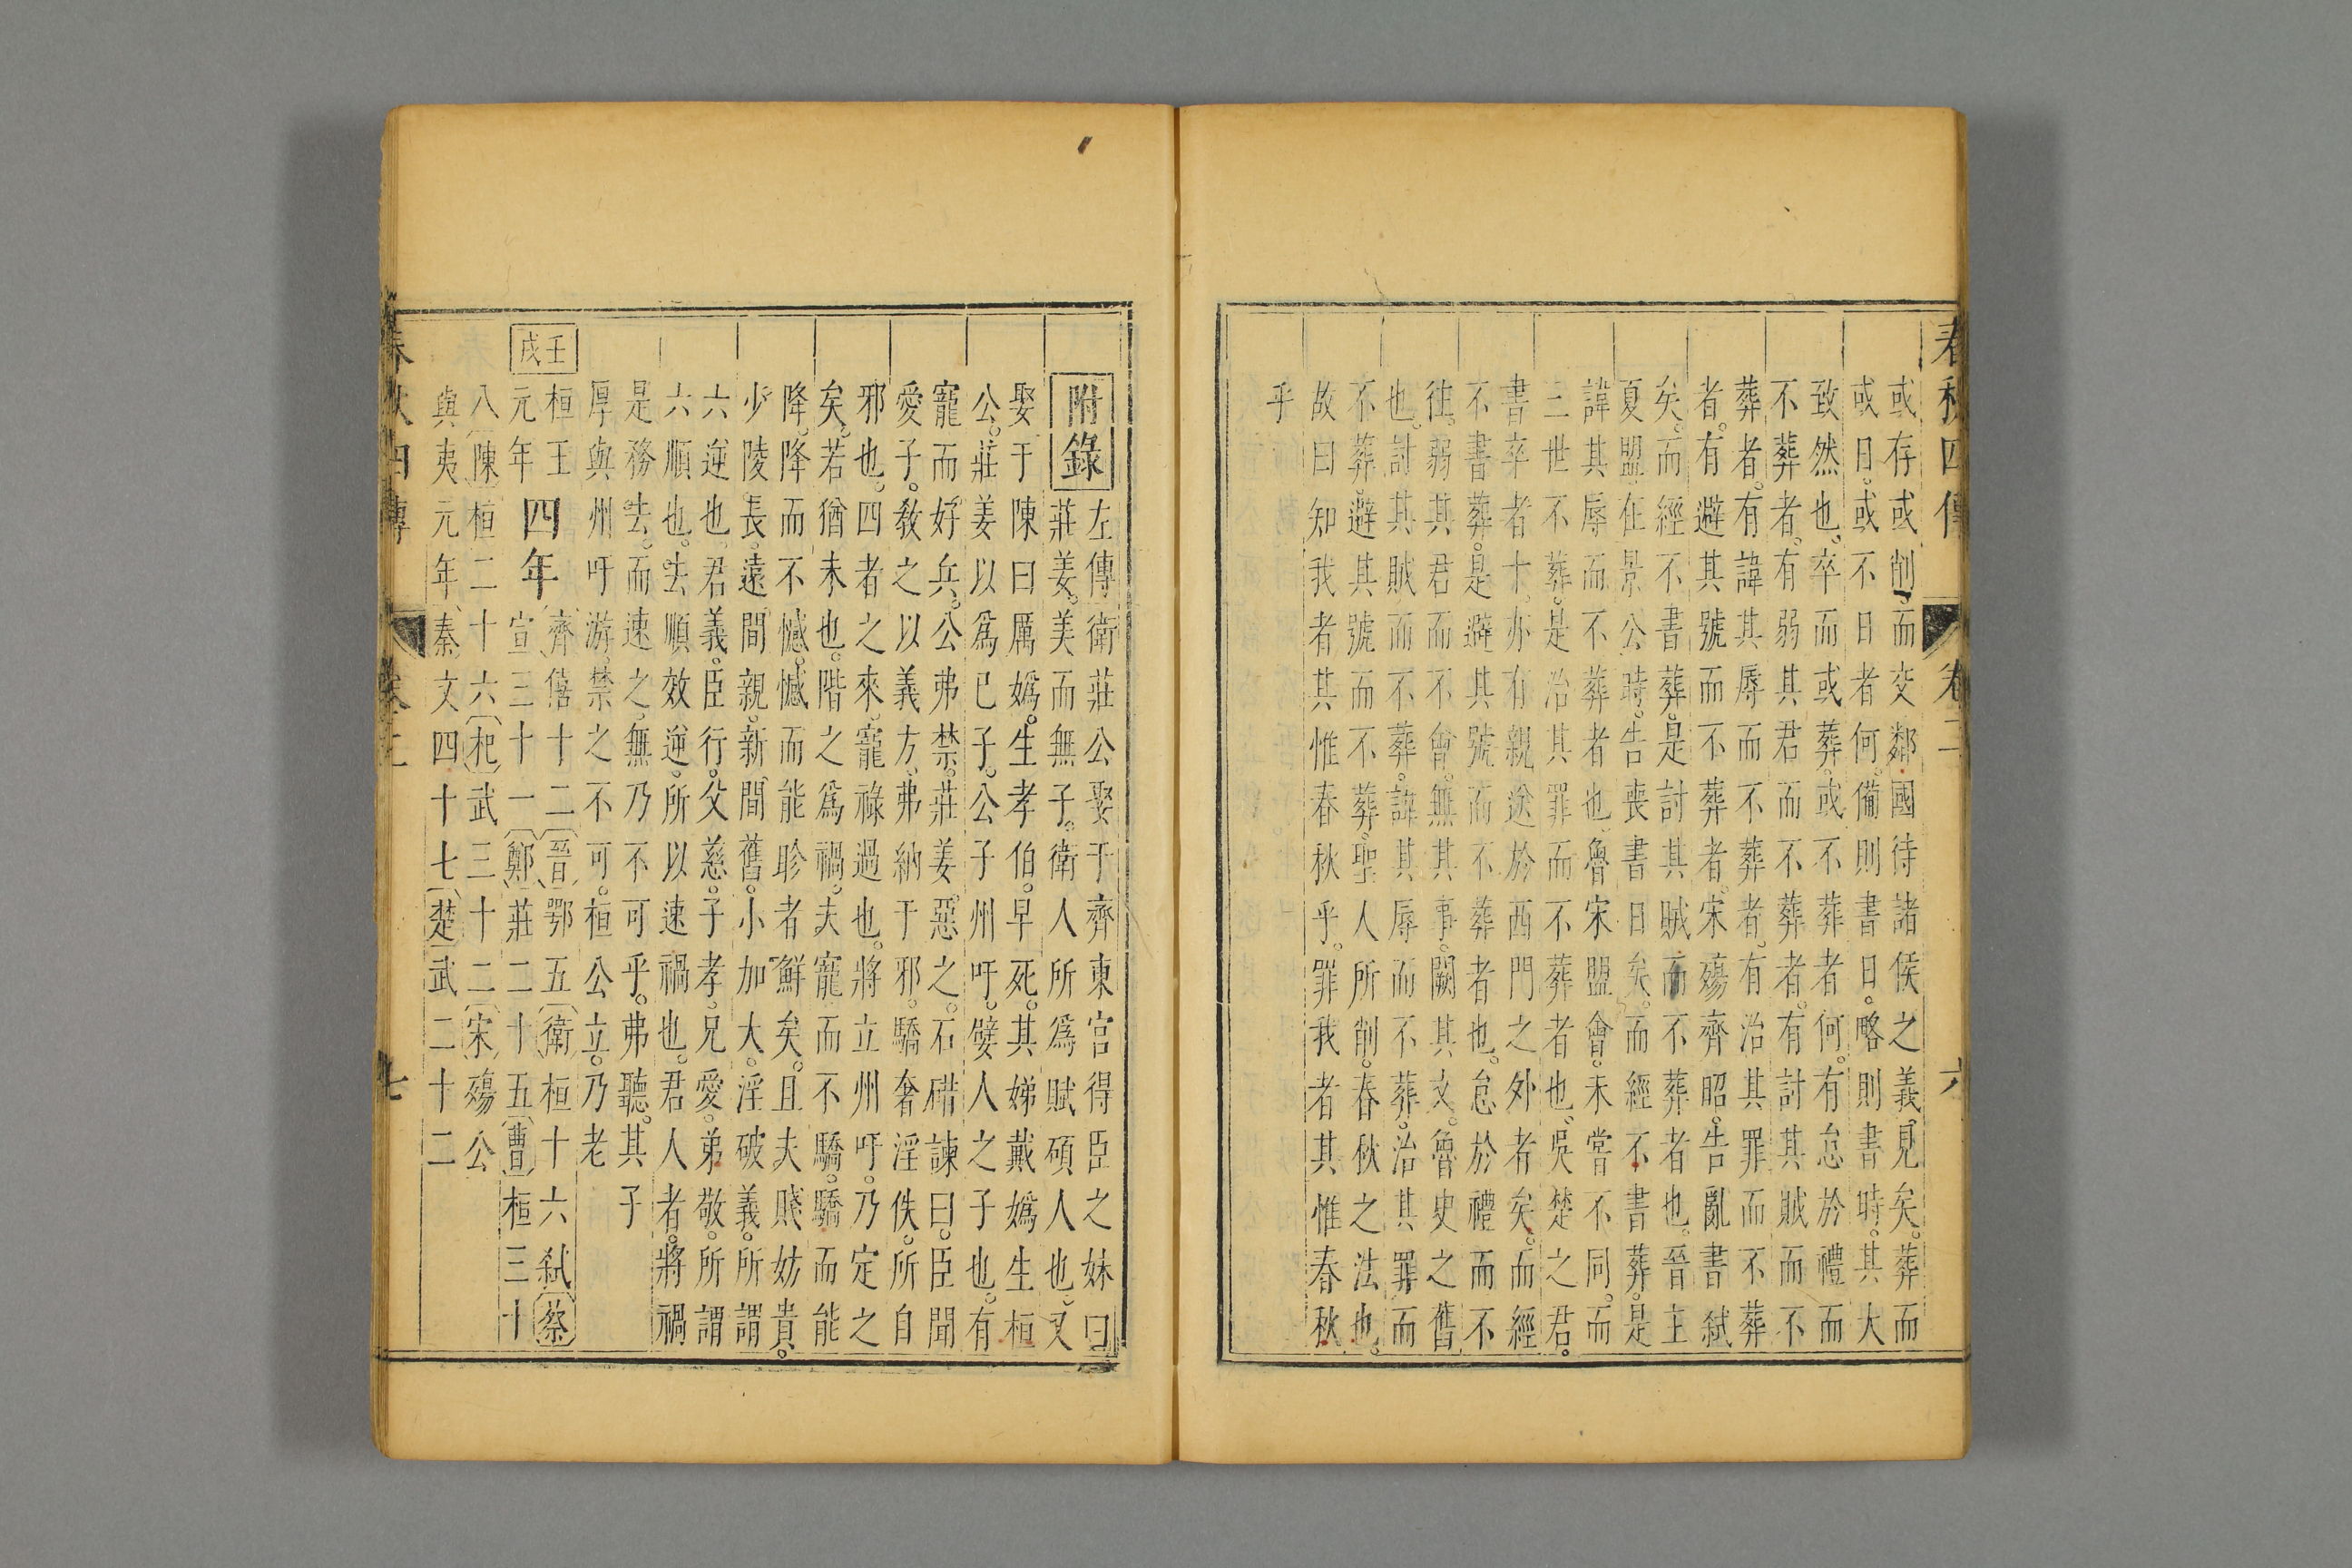 春秋四傳 卷二 六
或存或削。而交鄰國待諸侯之義見矣。葬而
或日。或不日者何。備則書日。略則書時。其大
致然也。卒而或葬。或不葬者何。有怠於禮而
不葬者。有弱其君而不葬者。有討其賊而不
葬者。有諱其辱而不葬者。有治其罪而不葬
者。有避其號而不葬者。宋殤齊昭。告亂書弑
矣。而經不書葬。是討其賊而不葬者也。晉主
夏盟。在景公時。告喪書日矣。而經不書葬。是
諱其辱而不葬者也。魯宋盟會。未嘗不同。而
三世不葬。是治其罪而不葬者也。吳楚之君。
書卒者十。亦有親送於西門之外者矣。而經
不書葬。是避其號而不葬者也。怠於禮而不
往。弱其君而不會。無其事。闕其文。魯史之舊
也。討其賊而不葬。諱其辱而不葬。治其罪而
不葬。避其號而不葬。聖人所削。春秋之法也。
故曰知我者其惟春秋乎。罪我者其惟春秋
乎
附錄
左傳衛莊公娶于齊東宮得臣之妹曰
莊姜。美而無子。衛人所為賦碩人也。又
娶于陳曰厲媯。生孝伯。早死。其娣戴媯生桓
公。莊姜以為己子。公子州吁。嬖人之子也。有
寵而好兵。公弗禁。莊姜惡之。石碏諫曰。臣聞
愛子。教之以義方。弗納于邪。驕奢淫佚。所自
邪也。四者之來。寵祿過也。將立州吁。乃定之
矣。若猶未也。階之為禍。夫寵而不驕。驕而能
降。降而不憾。憾而能眕者鮮矣。且夫賤妨貴。
少陵長。遠間親。新間舊。小加大。淫破義。所謂
六逆也。君義。臣行。父慈。子孝。兄愛。弟敬。所謂
六順也。去順效逆。所以速禍也。君人者。將禍
是務去。而速之。無乃不可乎。弗聽。其子
厚與州吁游。禁之不可。桓公立。乃老
壬戌
桓王元年
四年
齊僖十二晉鄂五衛桓十六弑蔡
宣三十一鄭莊二十五曹桓三十
八陳桓二十六杞武三十二宋殤公
與夷元年秦文四十七楚武二十二
春秋四傳 卷二 七